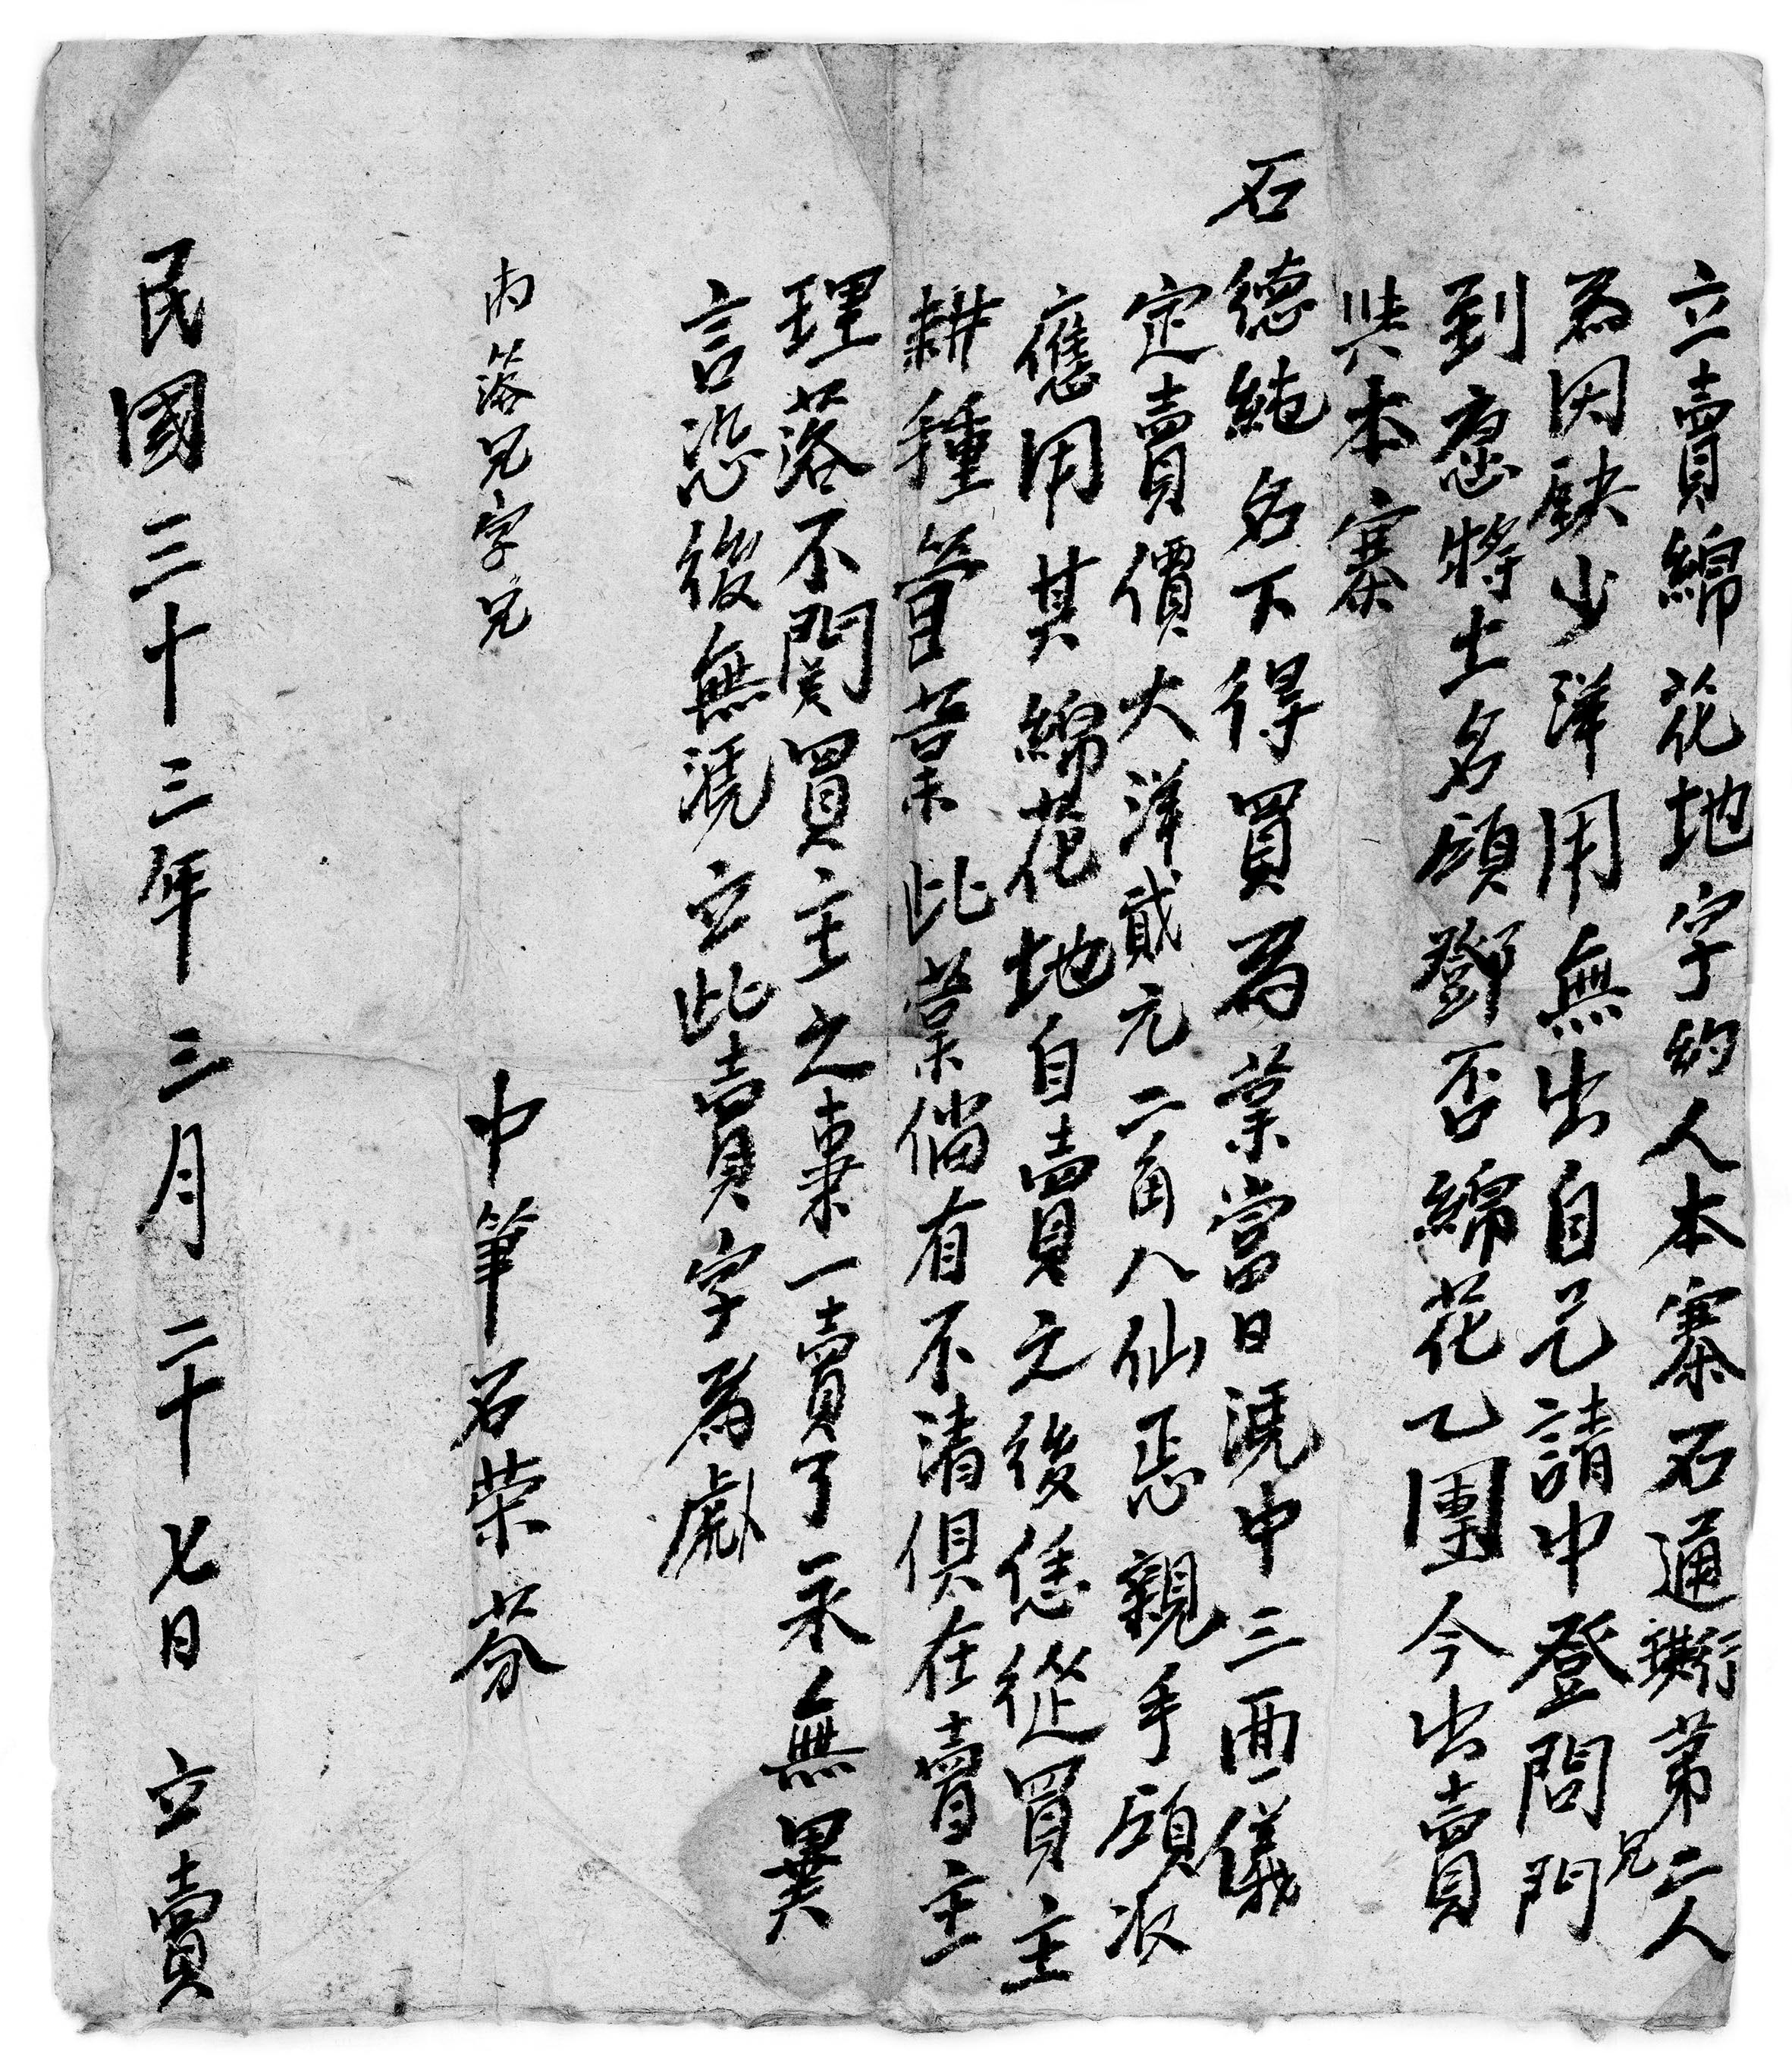 立賣綿花地字約人本寨石通行弟兄二人
為因缺少洋用無出自己請中登問門
到愿將土名頭鄧否綿花乙團今出賣
與本寨
石德純名下得買為業當日憑中三面儀
定賣價大洋貳元二角八仙正親手領收
應用其綿花地自賣之後恁從買主
耕種管業此業倘有不清俱在賣主
理落不関買主之事一賣了永無異
言恐後無凴立此賣字為處
内落兄字兄
中筆石荣芬
民國三十三年三月二十七日立賣